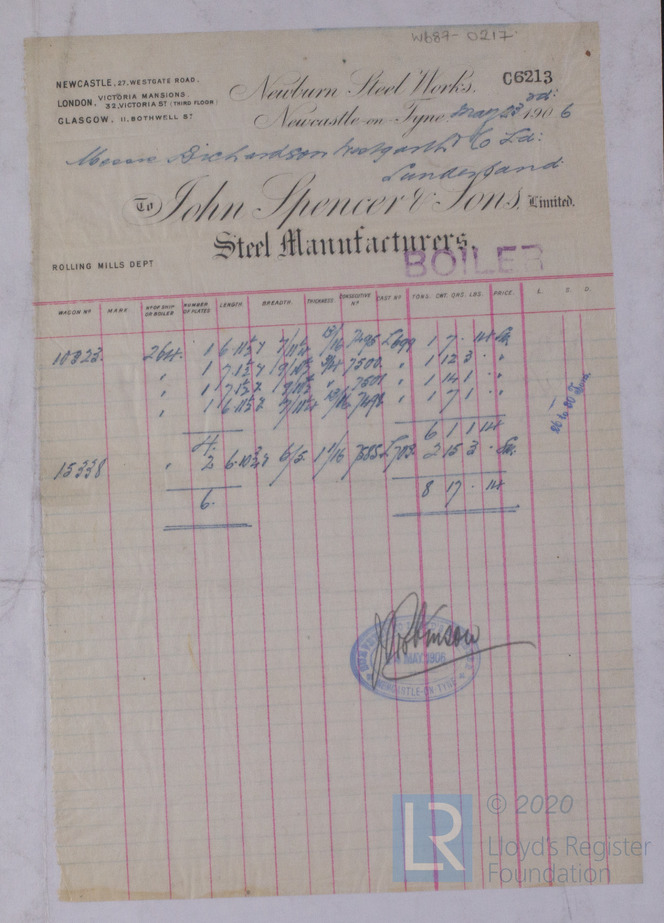 W687-0217
NEWCASTLE, 27, WESTGATE ROAD.
LONDON, VICTORIA MANSIONS
32, VICTORIA ST (THIRD FLOOR)
GLASGOW. 11, BOTHWELL ST
C6213
Newburn Steel Works.
Newcastle-on-Tyne May 23rd: 1906
Messrs Richardson Westgarth & Co Ld:
Sunderland
To John Spencer & Sons, Limited.
Steel Manufacturers,
ROLLING MILLS DEPT
BOILER
WAGON No MARK No OF SHIP OR BOILER NUMBER OF PLATES LENGTH BREADTH. THICKNESS CONSECUTIVE No CAST No TONS. CWT. QRS. LBS. PRICE. L. S. D.
10823. 264. 1 7495 L699 1 7 . 14
" 1 7500. " 1 12 3 . "
" 1 7501 " 1 14 1 . "
" 1 7498 " 1 7 1 . "
4. 6 1 1 14
15338 " 2 6/5. 1 1/16 7585 L702. 2 15 3 .
6. 8 17 . 14
J Robinson
MAY 1906
NEWCASTLE-ON-TYNE
LR
© 2020
Lloyd's Register
Foundation